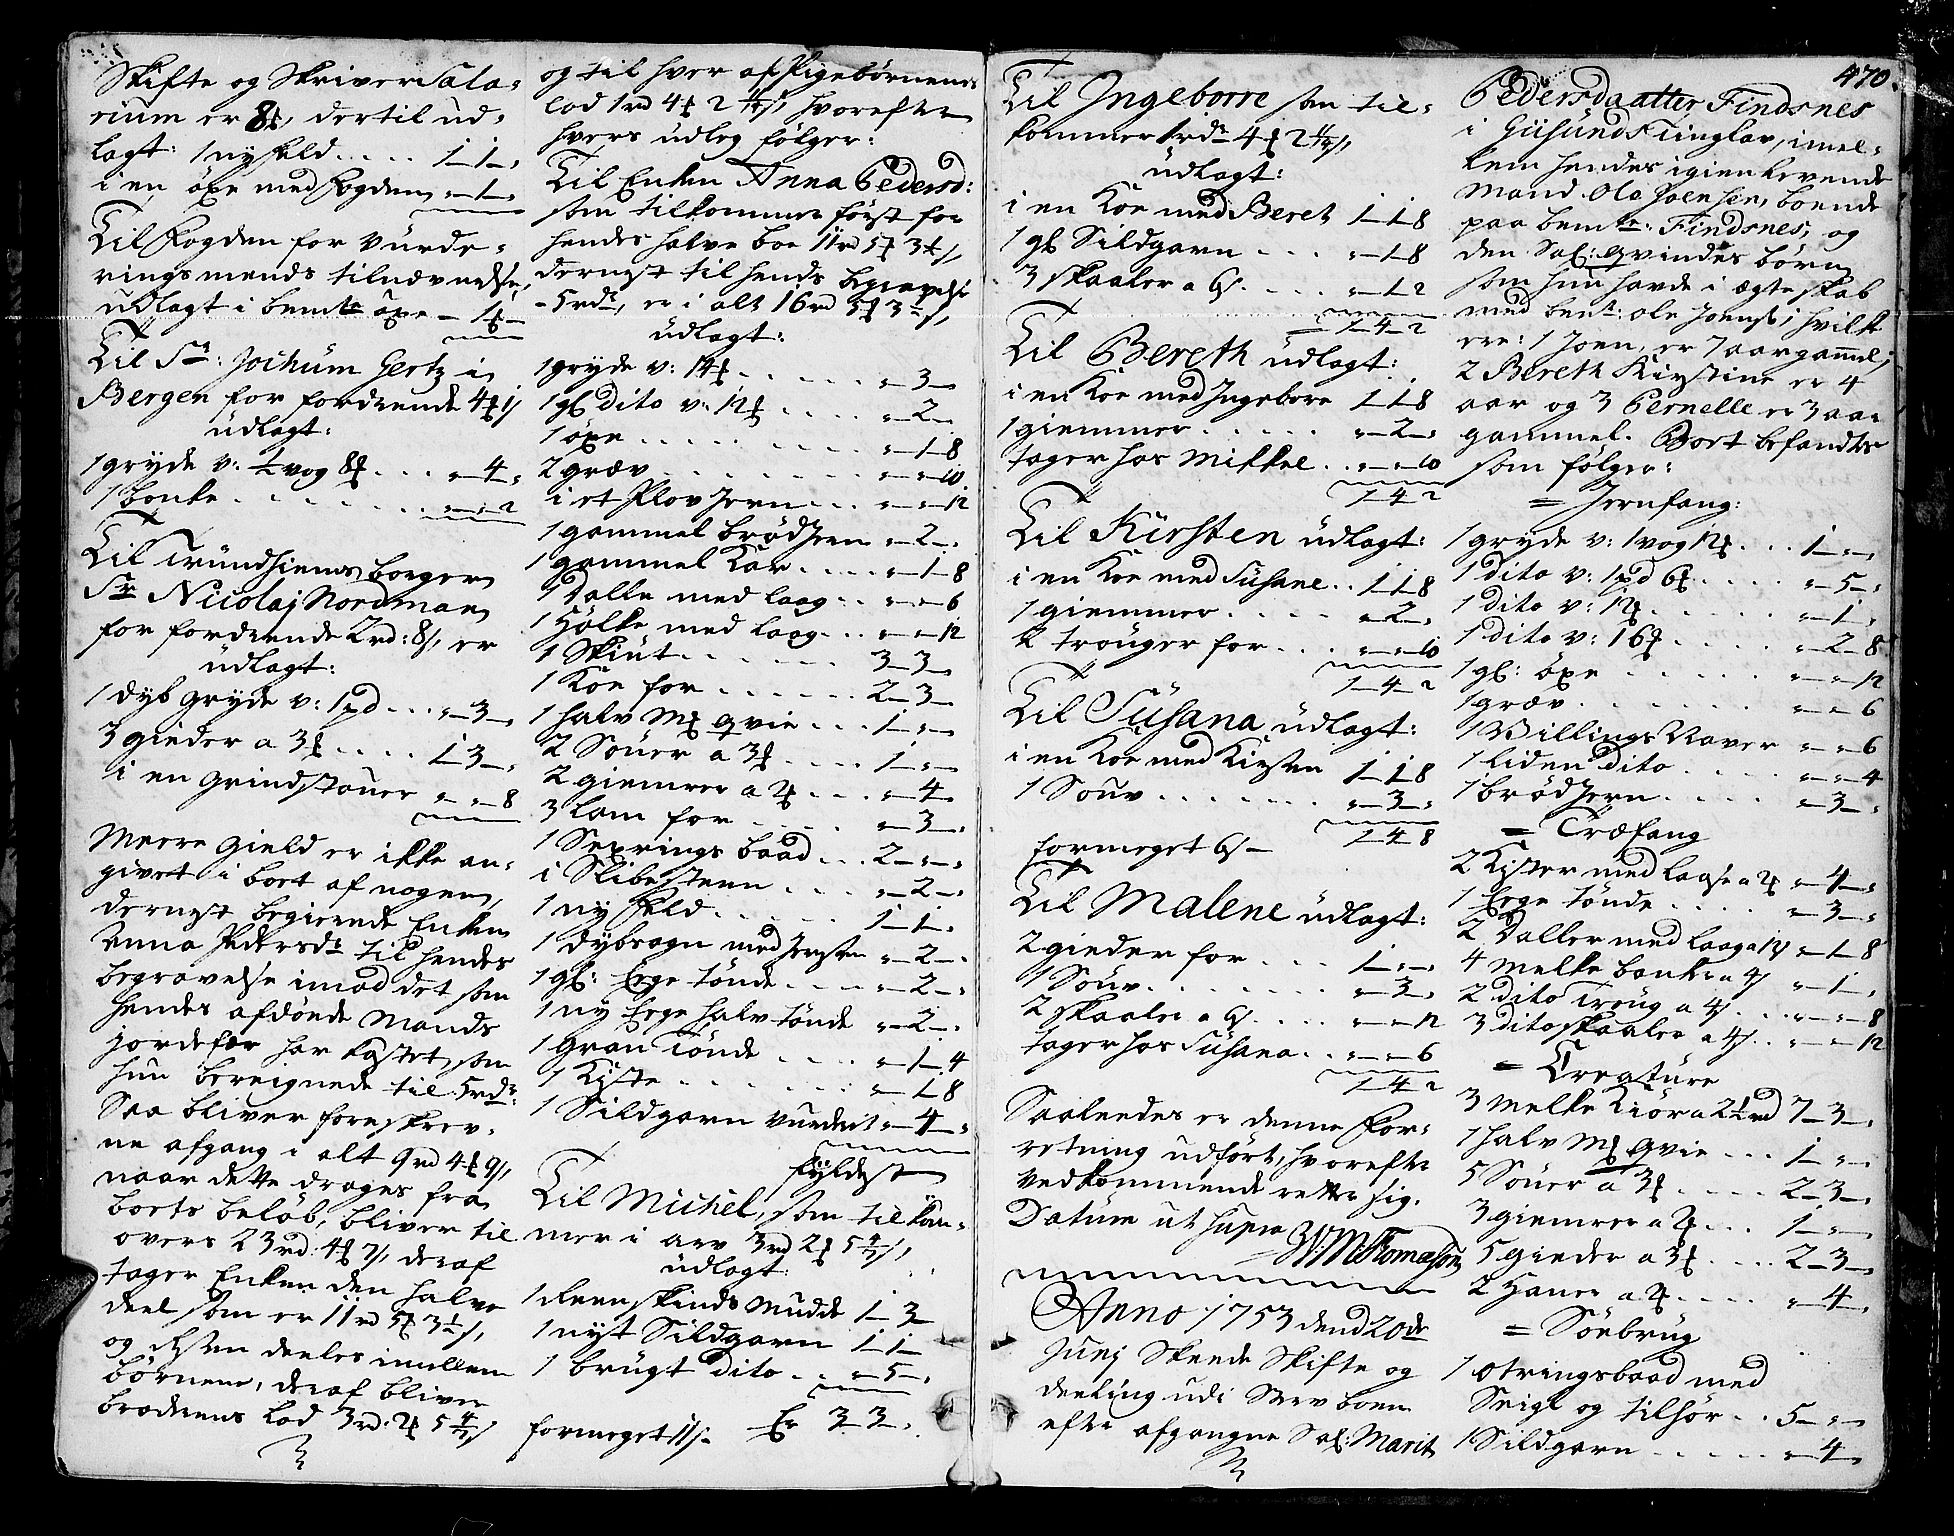 Skifte og Skriver Sala-
rium er 8 ℔, dertil ud-
lagt: 1 ny feld .... 1_1_"
i en öxe med Fogden "_1_"
Til Fogden for vurde-
rings mends tilnævnelse,
udlagt i bemte öxe _ 1 ℔_
Til Sr: Jochum Gertz i
Bergen for fordrende 4 ℔ 1/
udlagt:
1 gryde v: ½ vog 8 ℔ ... "_4_"
1 bonke ........ "_"_2
Til Trundhiems borger
Sr Nicolaj Nordman
for fordrende 2 rd: 8/, er
udlagt:
1 dyb gryde v: 1 pd ... "_3_"
3 gieder a 3 ℔ .... 1_3_"
i en grindstouer "_"_8
Meere gield er ikke an-
givet i boet af nogen,
dernest begierede Enken
Anna Pedersdr til hendes
begravelse imod det som
hendes afdöede Mands
jordefær har kostet, som
hun bereignede til 5 rdr:
Saa bliver foreskrev-
ne afgang i alt 9 rd 4 ℔ 9/,
naar dette drages fra
boets beløb, bliver til
overs 23 rd: 4 ℔ 7/, deraf
tager Enken den halve
deel som er 11 rd 5 ℔ 3½/,
og resten deeles imellem
börnene, deraf bliver
broderens lod 3 rd: 2 ℔ 5 4/7/
og til hver af Pigebörnenes
lod 1 rd 4 ℔ 2 /, hvorefter
hvers udleg følger:
Til Enken Anna Pedersd:
som tilkommer först for
hendes halve boe 11 rd 5 ℔ 3½/,
dernest til hends begravelse
- 5 rdr, er i alt 16 rd 5 ℔ 3½/,
udlagt:
1 gryde v: 14 ℔ ..... "_3_"
1 gl dito v: 12 ℔ .... "_2_"
1 öxe ........ "_1_8
2 græv ....... "_"_10
i et Plov Jern ... "_"_12
1 gammel brödJern "_2_"
1 gammel Kar .... "_1_8
1 Dalle med laag .. "_"_6
1 Hölke med laag ... "_"_12
1 Skiut ....... 3_3_
1 Koe for ...... 2_3_
1 halv M℔ qvie ... 1_"_
2 Souer a 3 ℔ .... 1_"_
2 giemrer a 2 ℔ ... "_4_
3 lam for .... "_3_"
1 Sexrings baad ... 2_"_"
i Slibesteen .... "_2_"
1 ny feld ..... 1_1_"
1 dybsagn med Jersten "_2_"
1 gl: Ege tönde ..... "_2_"
1 ny Ege halv tönde "_2_"
1 Gran Tönde .... "_1_4
1 Kiste ....... "_1_8
1 Sildgarn vurderit "_4_"
fyldest
Til Michel, som tilkom-
mer i arv 3 rd 2 ℔ 5 4/7/,
udlagt:
1 Reenskinds Mudde 1_3_
1 nyt Sildgarn 1_1_
1 brugt dito .. "_5_"
formeget 11/- Er 3_3_"
Til Ingeborre som til-
kommer 1 rdr 4 ℔ 2 /,
udlagt:
i en Koe med Beret 1_1_8
1 gl Sildgarn ... "_1_8
3 skaaler a 6/ .... "_1_2
= 1_4_2
Til Bereth udlagt:
i en Koe med Ingebore 1_1_8
1 giemmer ...... "_2_"
tager hos Mikkel .. "_"_10
1_4_2
Til Kirsten udlagt:
i en Koe med Susane .. 1_1_8
1 giemmer ..... "_2_"
2 trouger for ... "_"_10
1_4_2
Til Susana udlagt:
i en Koe med Kirsten 1_1_8
1 Souv ....... "_3_"
formeget 6/- 1_4_8
Til Malene udlagt:
2 gieder for ... 1_"_"
1 Souv ....... "_3_"
2 skaaler a 6/ .... "_"_12
tager hos Susana .. "_"_6
1_4_2
Saaleedes er denne For-
retning udfört, hvorefter
vedkommende rette sig.
Datum ut supra
WMThomesön
Anno 1753 dend 20de
Junj Skeede Skifte og
deeling udi Sterv boen
efter afgangne Sal: Marit
470.
Pedersdaatter Findsnes
i Giisunds Tinglav, imel-
lem hendes igienlevende
Mand Ole Joensen, boende
paa bemte: Findsnes, og
den Sal: qvindes börn
som hun hafde i ægteskab
med bemt: Ole Joens: hvilke
ere: 1 Joen, er 7 aar gammel,
2 Bereth Kirstine er 4
aar og 3 Pernelle er 3 aar
gammel. Boet befandtes
som fölger:
= Jernfang:
1 gryde v: 1 vog 12 ℔ ... 1_"_"
1 dito v: 1 pd 6 ℔ ..... "_5_"
1 dito v: 12 ℔ ..... "_1_"
1 dito v: 16 ℔ .... "_2_8
1 gl: öxe ...... "_"_12
1 græv ....... "_"_6
1 Billings Naver "_"_6
1 liden dito .... "_"_4
1 brödJern .... "_3_"
= Træfang
2 Kister med laase a 2 ℔ "_4_"
1 Ege tönde .... "_3_"
2 Daller med laag a 12/ "_1_8
4 Melke bonker a 4/ "_1_"
2 dito Troug a 4/ .... "_"_8
3 dito skaaler a 4/ .. "_"_12
= Creature
3 Melke Kiör a 2½ rd 7_3_"
1 halv M℔ qvie ... 1_"_"
5 Souer a 3 ℔ .... 2_3_"
3 giemrer a 2 ℔ ... 1_"_"
5 gieder a 3 ℔ .... 2_3_"
2 Haner a 2 ℔ .... "_4_"
= Söebrug
1 otringsbaad med
Seigl og tilhör .. 5_"_"
1 Sildgarn ..... "_4_"